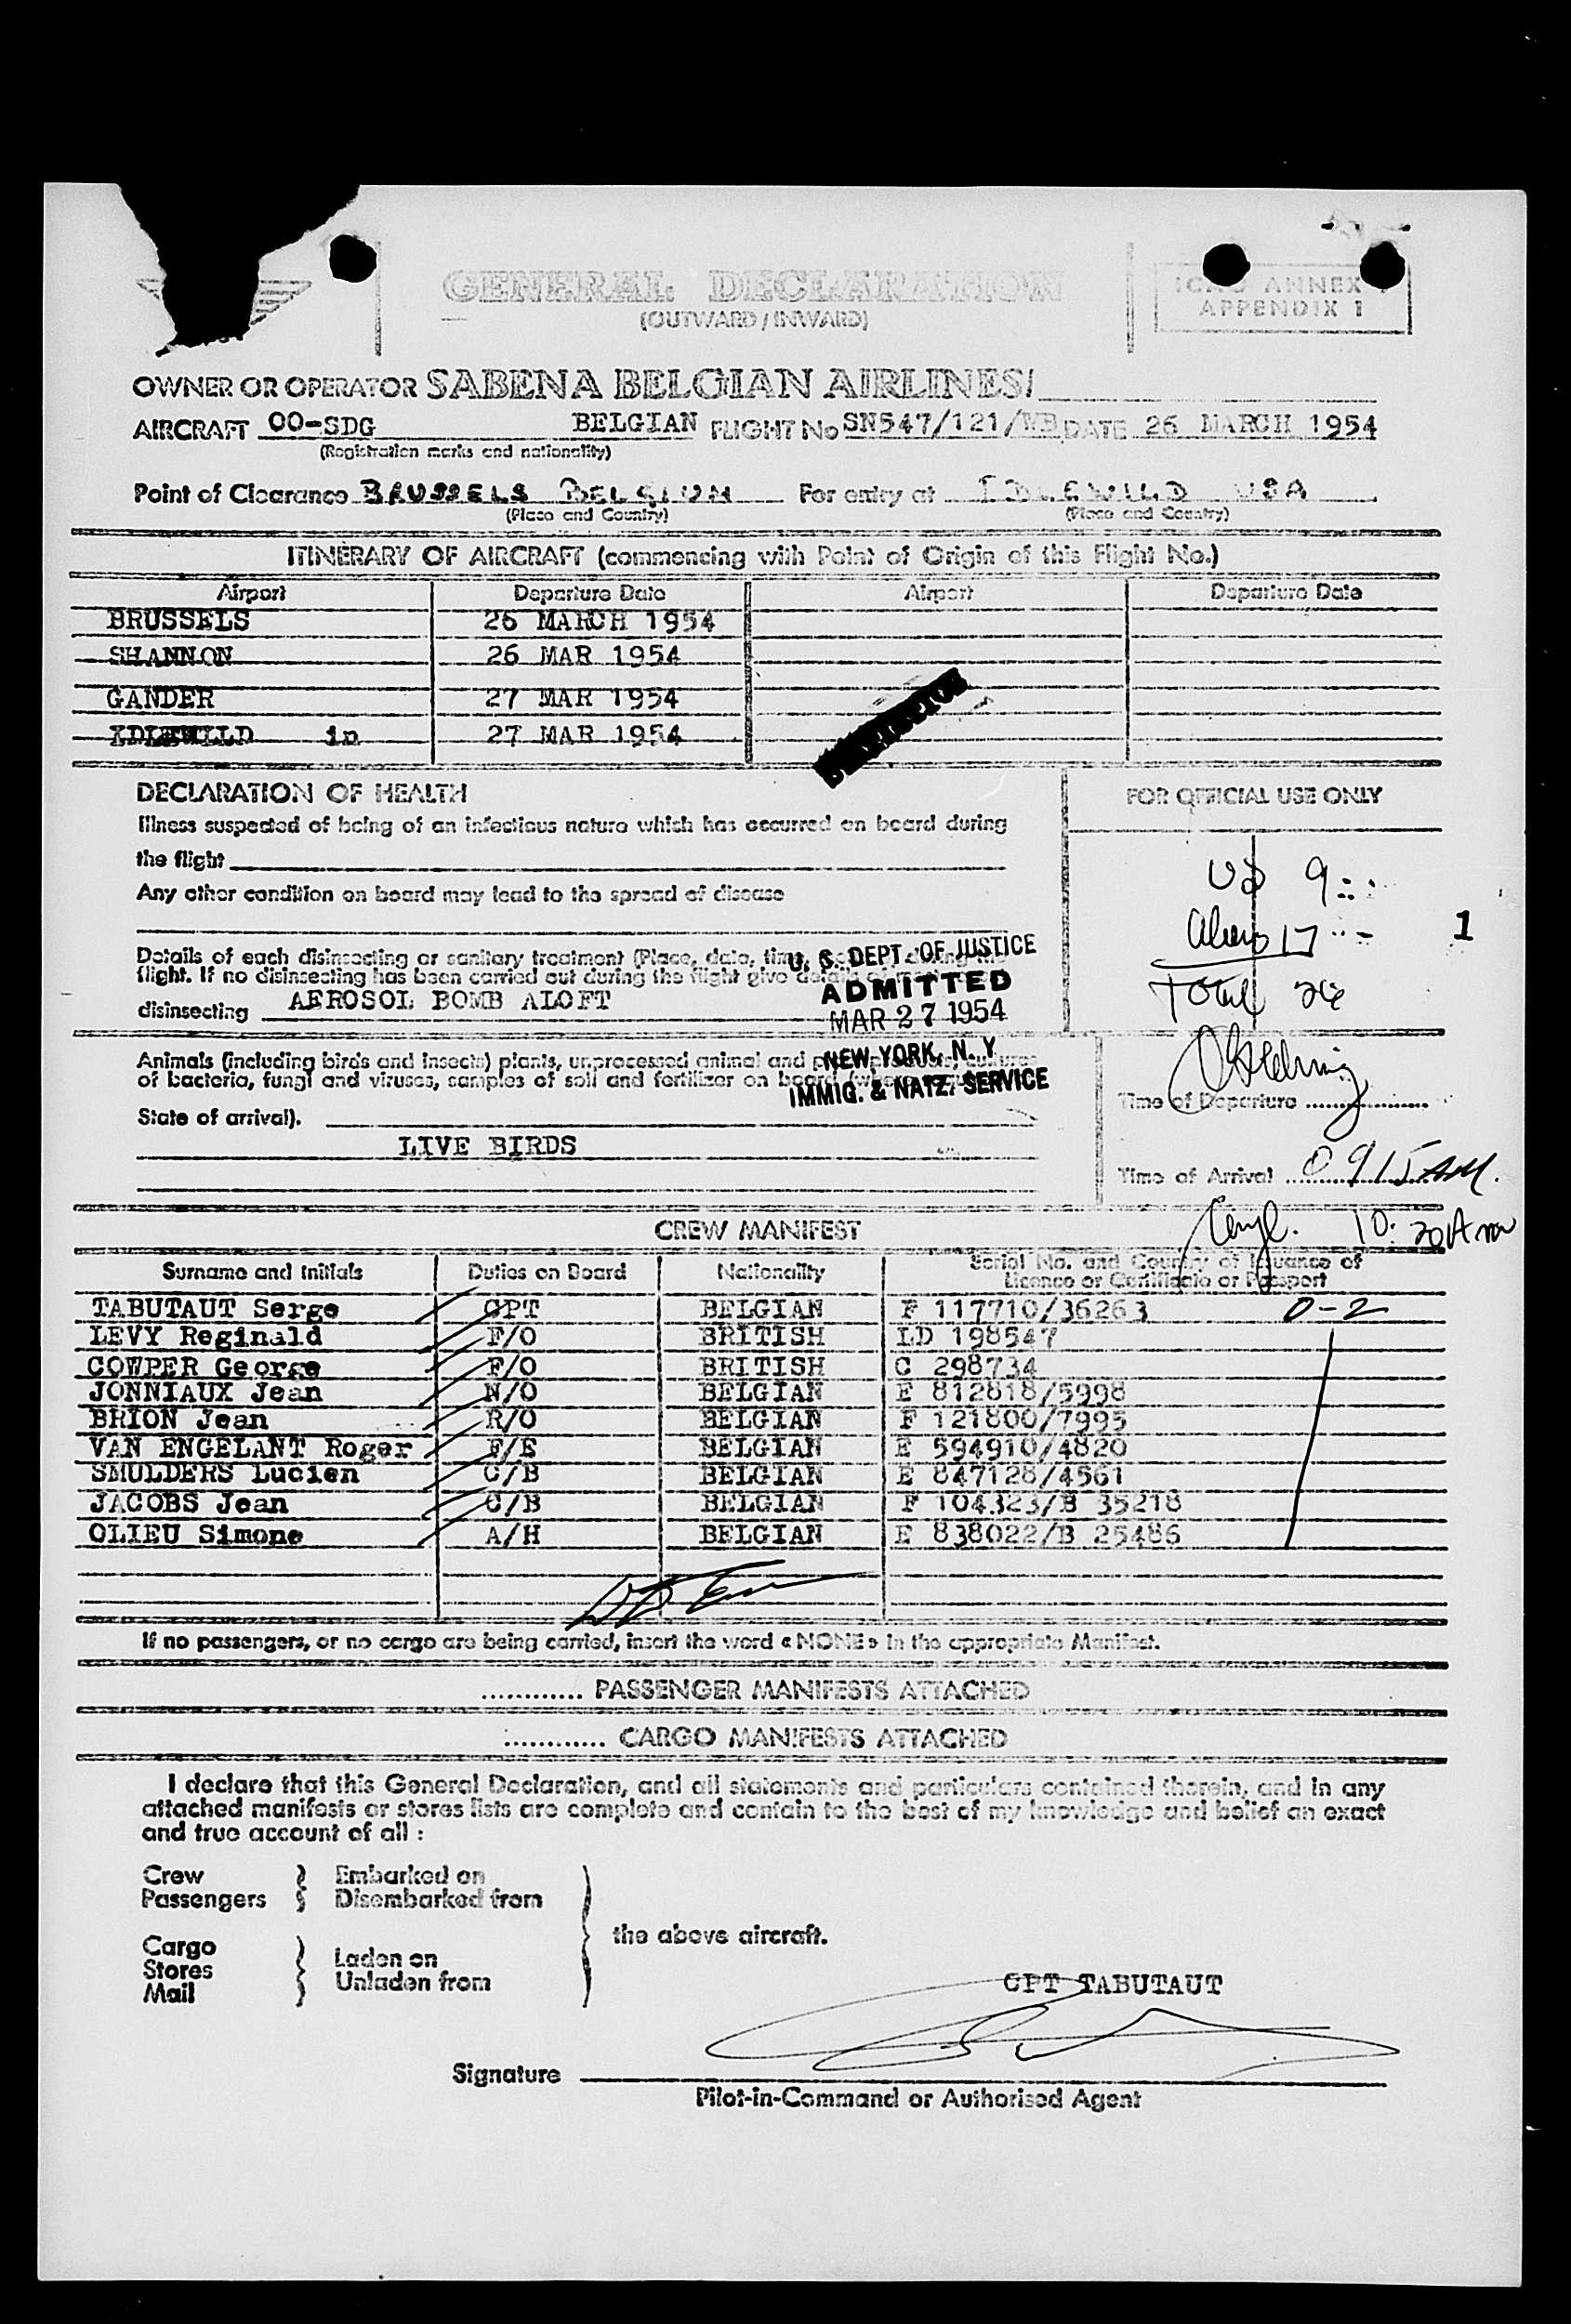 GENERAL DECLARATION
(OUTWARD / INWARD)
ANNEX
APPENDIX 1
OWNER OR OPERATOR SABENA BELGIAN AIRLINES/
AIRCRAFT OO-SDG BELGIAN FLIGHT No SN547/121/ DATE 26 MARCH 1954
(Registration marks and nationality)
Point of Clearance BRUSSELS BELGIUM For entry at IDLEWILD USA
(Place and Country) (Place and Country)
ITINERARY OF AIRCRAFT (commencing with Point of Origin of this Flight No.)
Airport Departure Date Airport Departure Date
BRUSSELS 26 MARCH 1954
SHANNON 26 MAR 1954
GANDER 27 MAR 1954
IDLEWILD in 27 MAR 1954
DECLARATION OF HEALTH
FOR OFFICIAL USE ONLY
Illness suspected of being of an infectious nature which has occurred on board during
the flight
Any other condition on board may lead to the spread of disease
US 9
Alien 17
1
Total 26
Details of each disinsecting or sanitary treatment (Place, date, time, during the
flight. If no disinsecting has been carried out during the flight give details of
disinsecting AEROSOL BOMB ALOFT
U. S. DEPT. OF JUSTICE
ADMITTED
MAR 27 1954
NEW YORK, N. Y.
IMMIG. & NATZ. SERVICE
Animals (including birds and insects) plants, unprocessed animal and
of bacteria, fungi and viruses, samples of soil and fertilizer on board
State of arrival).
LIVE BIRDS
Time of Departure
Time of Arrival 0915 AM.
10:20 AM
CREW MANIFEST
Surname and Initials Duties on Board Nationality Serial No. and Country of Issuance of
Licence or Certificate or Passport
TABUTAUT Serge CPT BELGIAN F 117710/36263 0-2
LEVY Reginald F/O BRITISH LD 198547
COWPER George F/O BRITISH C 298734
JONNIAUX Jean N/O BELGIAN E 812818/5998
BRION Jean R/O BELGIAN F 121800/7995
VAN ENGELANT Roger F/E BELGIAN E 594910/4820
SMULDERS Lucien C/B BELGIAN E 847128/4561
JACOBS Jean C/B BELGIAN F 104323/B 35218
OLIEU Simone A/H BELGIAN E 838022/B 25486
If no passengers, or no cargo are being carried, insert the word « NONE » in the appropriate Manifest.
............ PASSENGER MANIFESTS ATTACHED
............ CARGO MANIFESTS ATTACHED
I declare that this General Declaration, and all statements and particulars contained therein, and in any
attached manifests or stores lists are complete and contain to the best of my knowledge and belief an exact
and true account of all :
Crew Embarked on
Passengers Disembarked from
the above aircraft.
Cargo
Stores Laden on
Mail Unladen from
CPT TABUTAUT
Signature
Pilot-in-Command or Authorised Agent